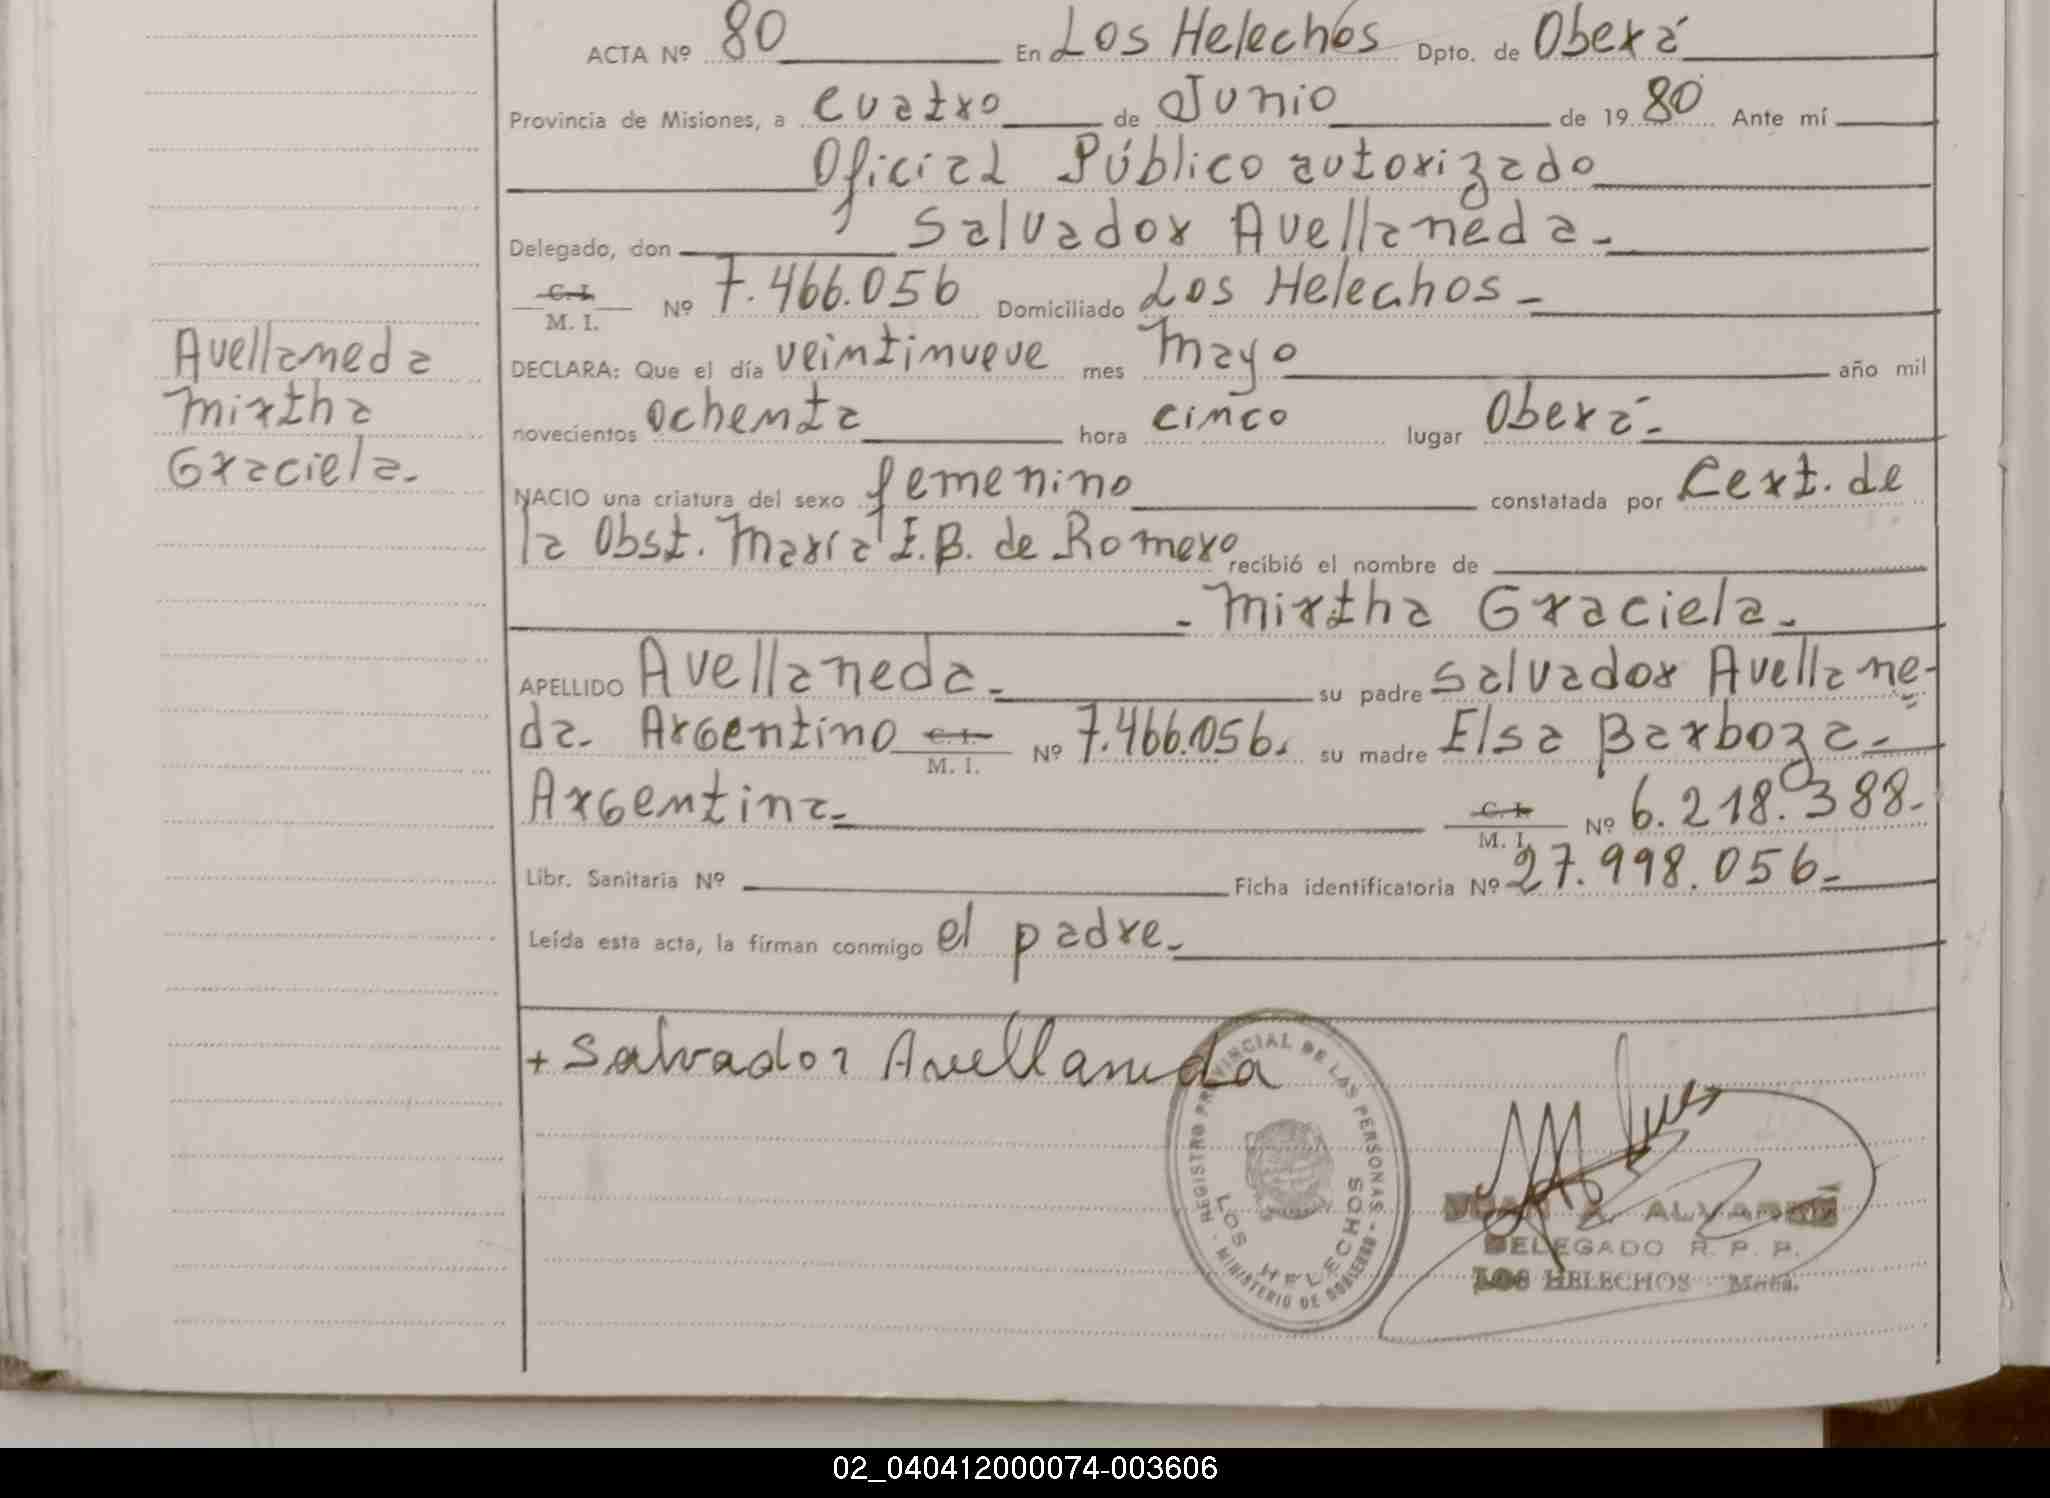 ACTA Nº 80 En Los Helechos Dpto. de Oberá
Provincia de Misiones, a cuatro de Junio de 1980 Ante mí
Oficial Público autorizado
Delegado, don Salvador Avellaneda.-
C. I. M. I. Nº 7.466.056 Domiciliado Los Helechos.-
Avellaneda
Mirtha
Graciela.-
DECLARA: Que el día veintinueve mes Mayo año mil
novecientos ochenta hora cinco lugar Oberá.-
NACIO una criatura del sexo femenino constatada por Cert. de
la Obst. María E.B. de Romero recibió el nombre de
- Mirtha Graciela.-
APELLIDO Avellaneda.- su padre Salvador Avellane-
da.- Argentino C. I. M. I. Nº 7.466.056. su madre Elsa Barboza.-
Argentina.- C. I. M. I. Nº 6.218.388.-
Libr. Sanitaria Nº Ficha identificatoria Nº 27.998.056.-
Leída esta acta, la firman conmigo el padre.-
+ Salvador Avellaneda
REGISTRO PROVINCIAL DE LAS PERSONAS
LOS HELECHOS
MINISTERIO DE GOBIERNO
JUAN A. ALVAREZ
DELEGADO R. P. P.
LOS HELECHOS
02_040412000074-003606